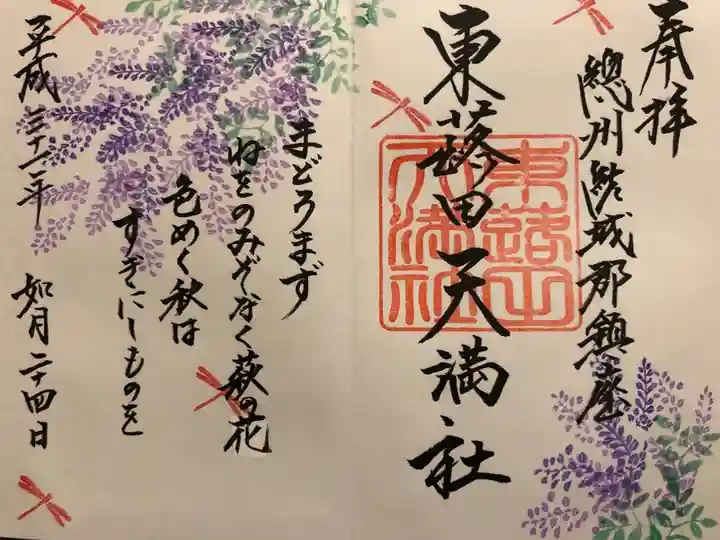 奉拝
總州結城郡鎮座
東蕗田天満社
東蕗田
天満社
まどろまず
ねをのみぞなく萩の花
色めく秋は
すぎにしものを
平成三十一年
如月二十四日